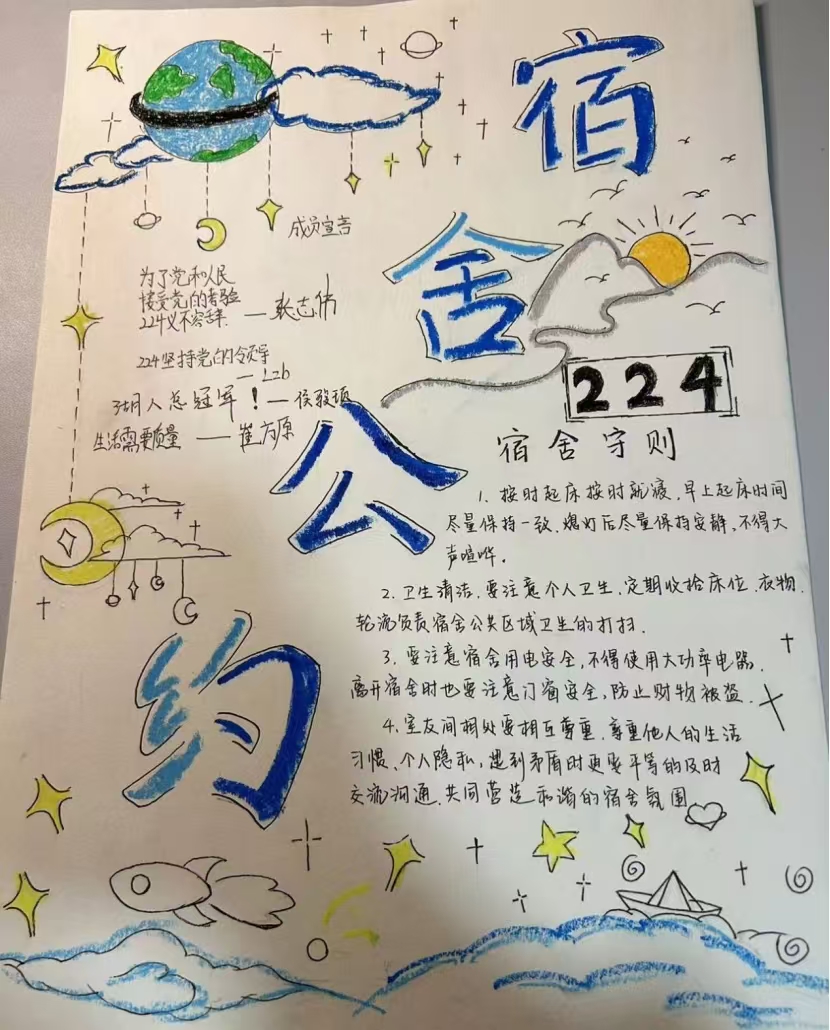 宿舍公约
成员宣言
为了党和人民
接受党的考验
224义不容辞 — 张志伟
224坚持党的领导
— Lzb
湖人总冠军！— 侯骏
生活需要质量 — 崔方原
224
宿舍守则
1. 按时起床按时就寝，早上起床时间
尽量保持一致、熄灯后尽量保持安静，不得大
声喧哗。
2. 卫生清洁，要注意个人卫生，定期收拾床位、衣物，
轮流负责宿舍公共区域卫生的打扫.
3. 要注意宿舍用电安全，不得使用大功率电器，
离开宿舍时也要注意门窗安全，防止财物被盗.
4. 室友间相处要相互尊重、尊重他人的生活
习惯、个人隐私，遇到矛盾时更要平等的及时
交流沟通、共同营造和谐的宿舍氛围